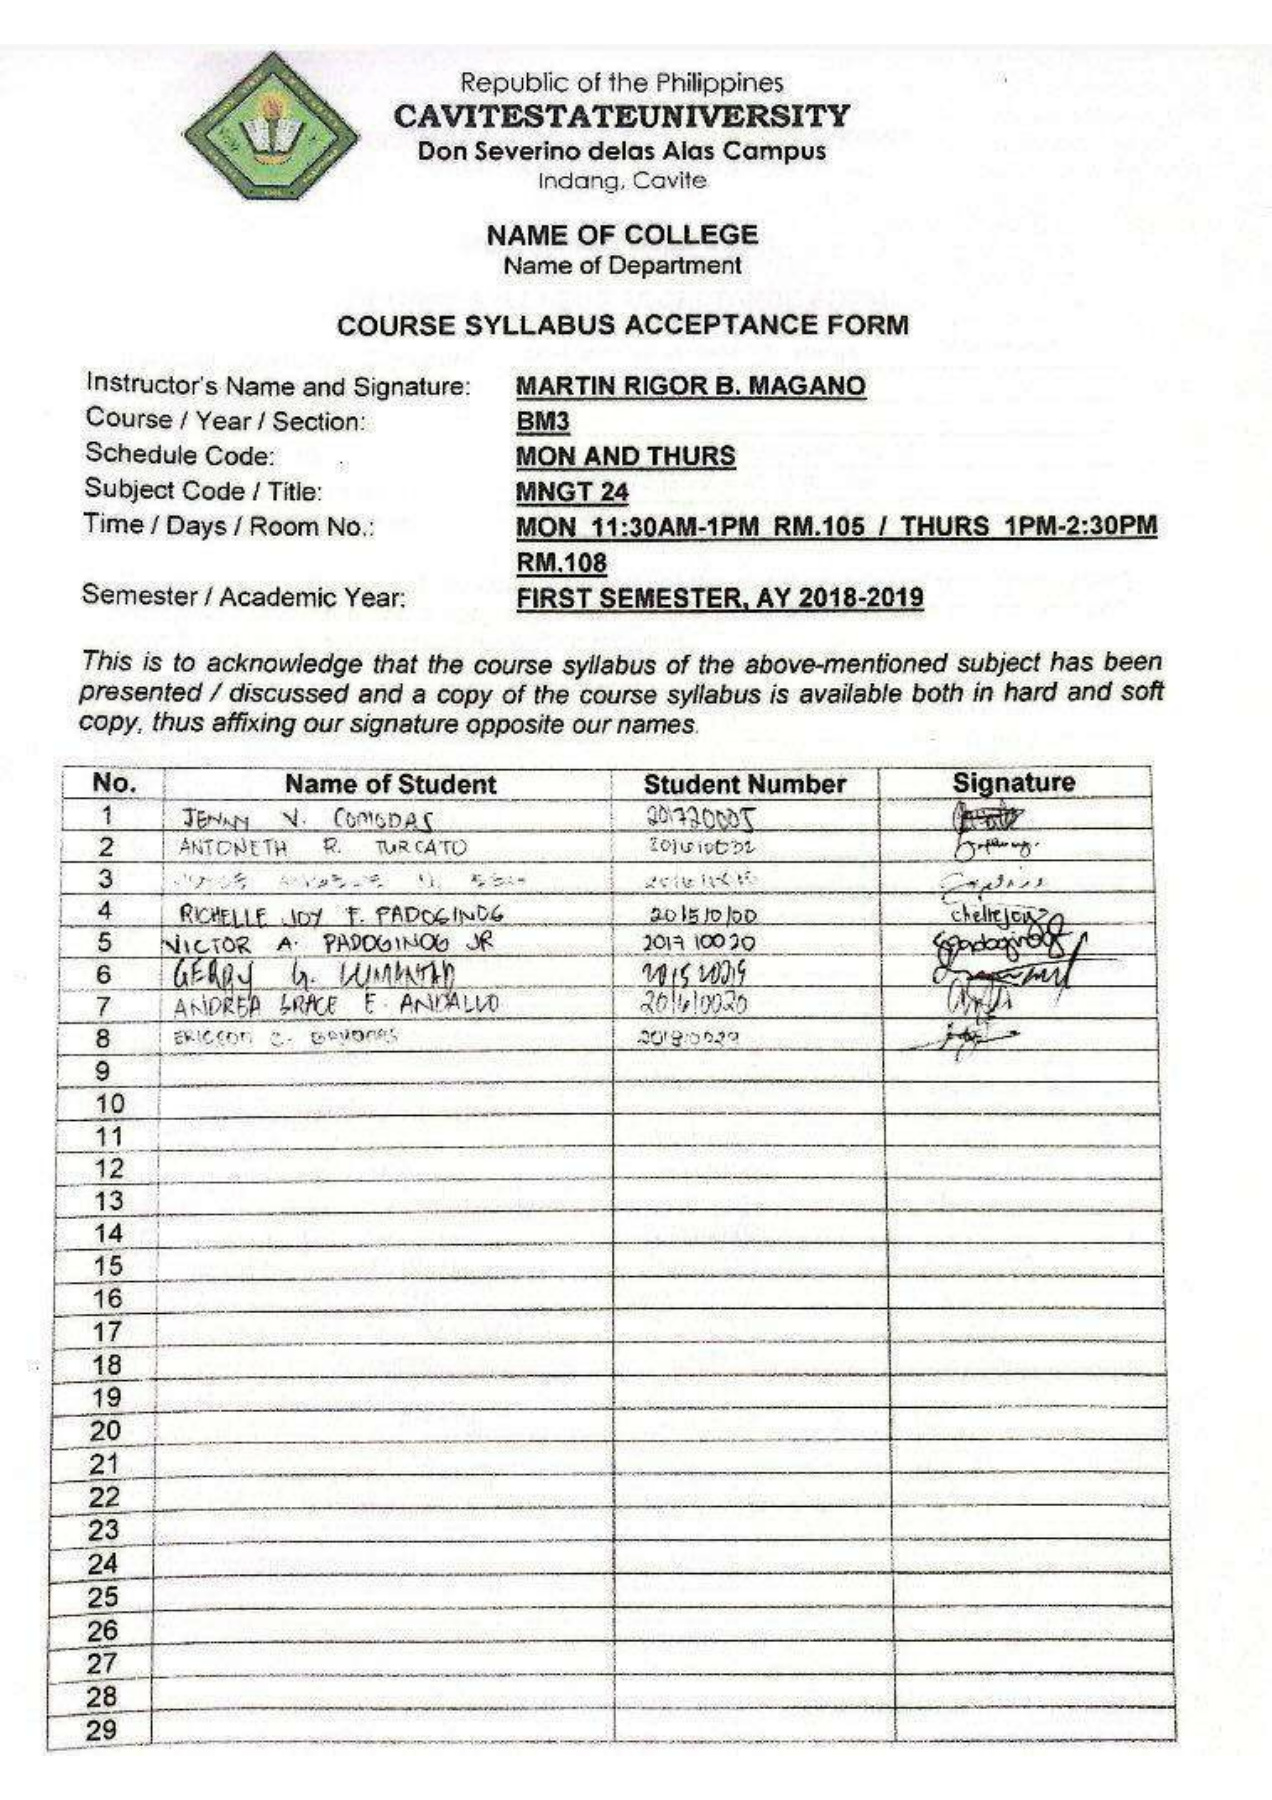 Republic of the Philippines
CAVITESTATEUNIVERSITY
Don Severino delas Alas Campus
Indang, Cavite
NAME OF COLLEGE
Name of Department
COURSE SYLLABUS ACCEPTANCE FORM
Instructor's Name and Signature: MARTIN RIGOR B. MAGANO
Course / Year / Section: BM3
Schedule Code: MON AND THURS
Subject Code / Title: MNGT 24
Time / Days / Room No.: MON 11:30AM-1PM RM.105 / THURS 1PM-2:30PM
RM.108
Semester / Academic Year: FIRST SEMESTER, AY 2018-2019
This is to acknowledge that the course syllabus of the above-mentioned subject has been
presented / discussed and a copy of the course syllabus is available both in hard and soft
copy, thus affixing our signature opposite our names.
No. Name of Student Student Number Signature
1 JENNY V. COMODAS 201720005
2 ANTONETH R. TURCATO
3
4 RICHELLE JOY F. PADOGINOG 201510100
5 VICTOR A. PADOGINOG JR 201710020
6 GERRY G.
7 ANDREA GRACE E. ANDALLO 201610020
8
9
10
11
12
13
14
15
16
17
18
19
20
21
22
23
24
25
26
27
28
29